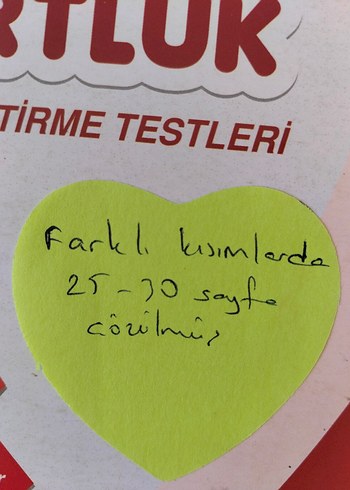 RTLUK
TİRME TESTLERİ
Farklı kısımlarda
25-30 sayfa
çözülmüş